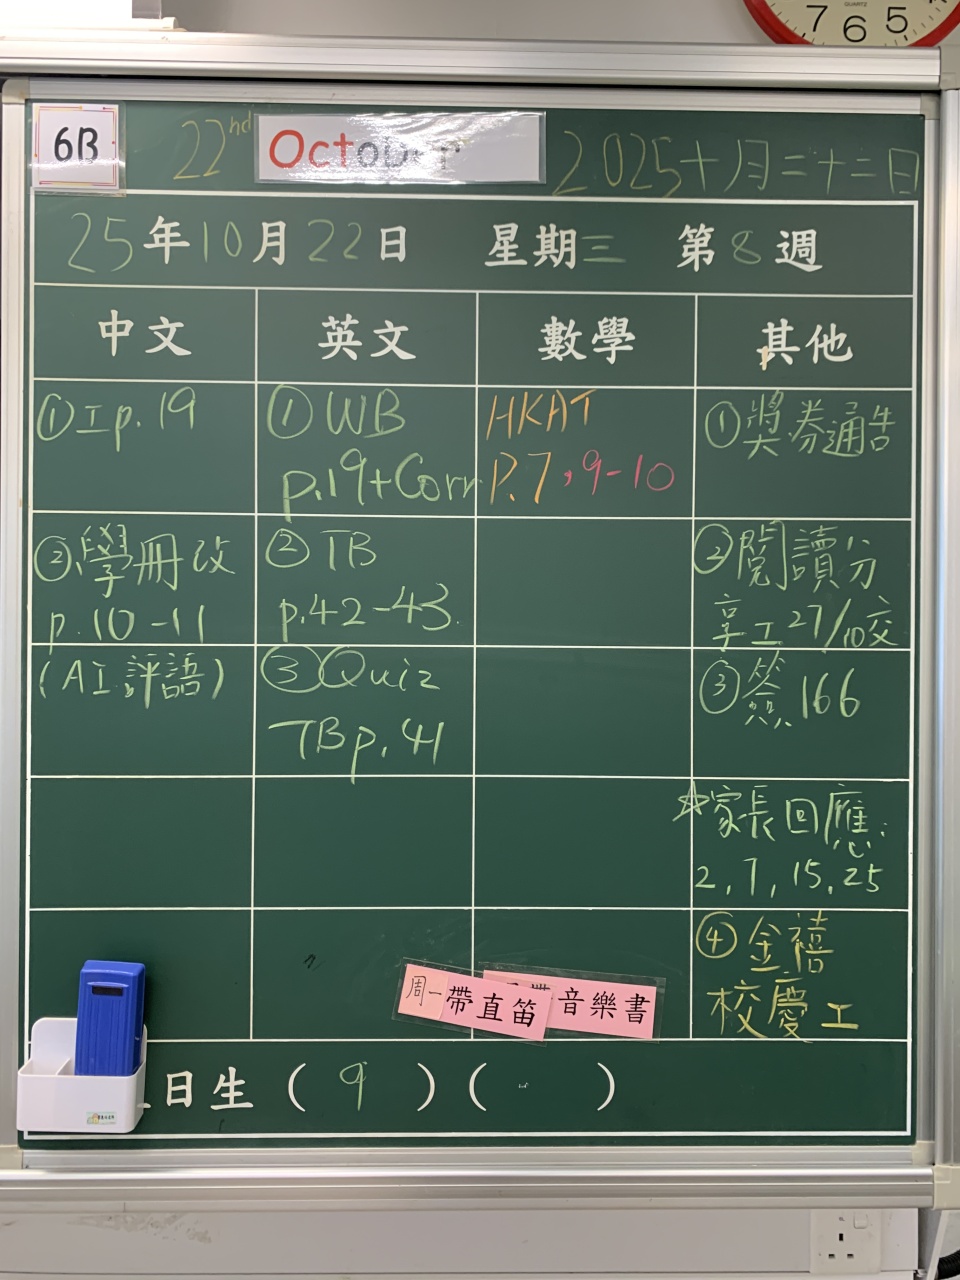 7 6 5
QUARTZ
6B
22nd October 2025十月二十二日
25年10月22日 星期三 第8週
中文 英文 數學 其他
①工p.19
②學冊改
p.10-11
(AI評語)
①WB
p.19+Corr
②TB
p.42-43.
③Quiz
TBp.41
HKAT
P.7,9-10
①獎券通告
②閱讀分
享工27/10交
③簽166
☆家長回應:
2,7,15,25
④金禧
校慶工
周一帶直笛
音樂書
日生(9)( )